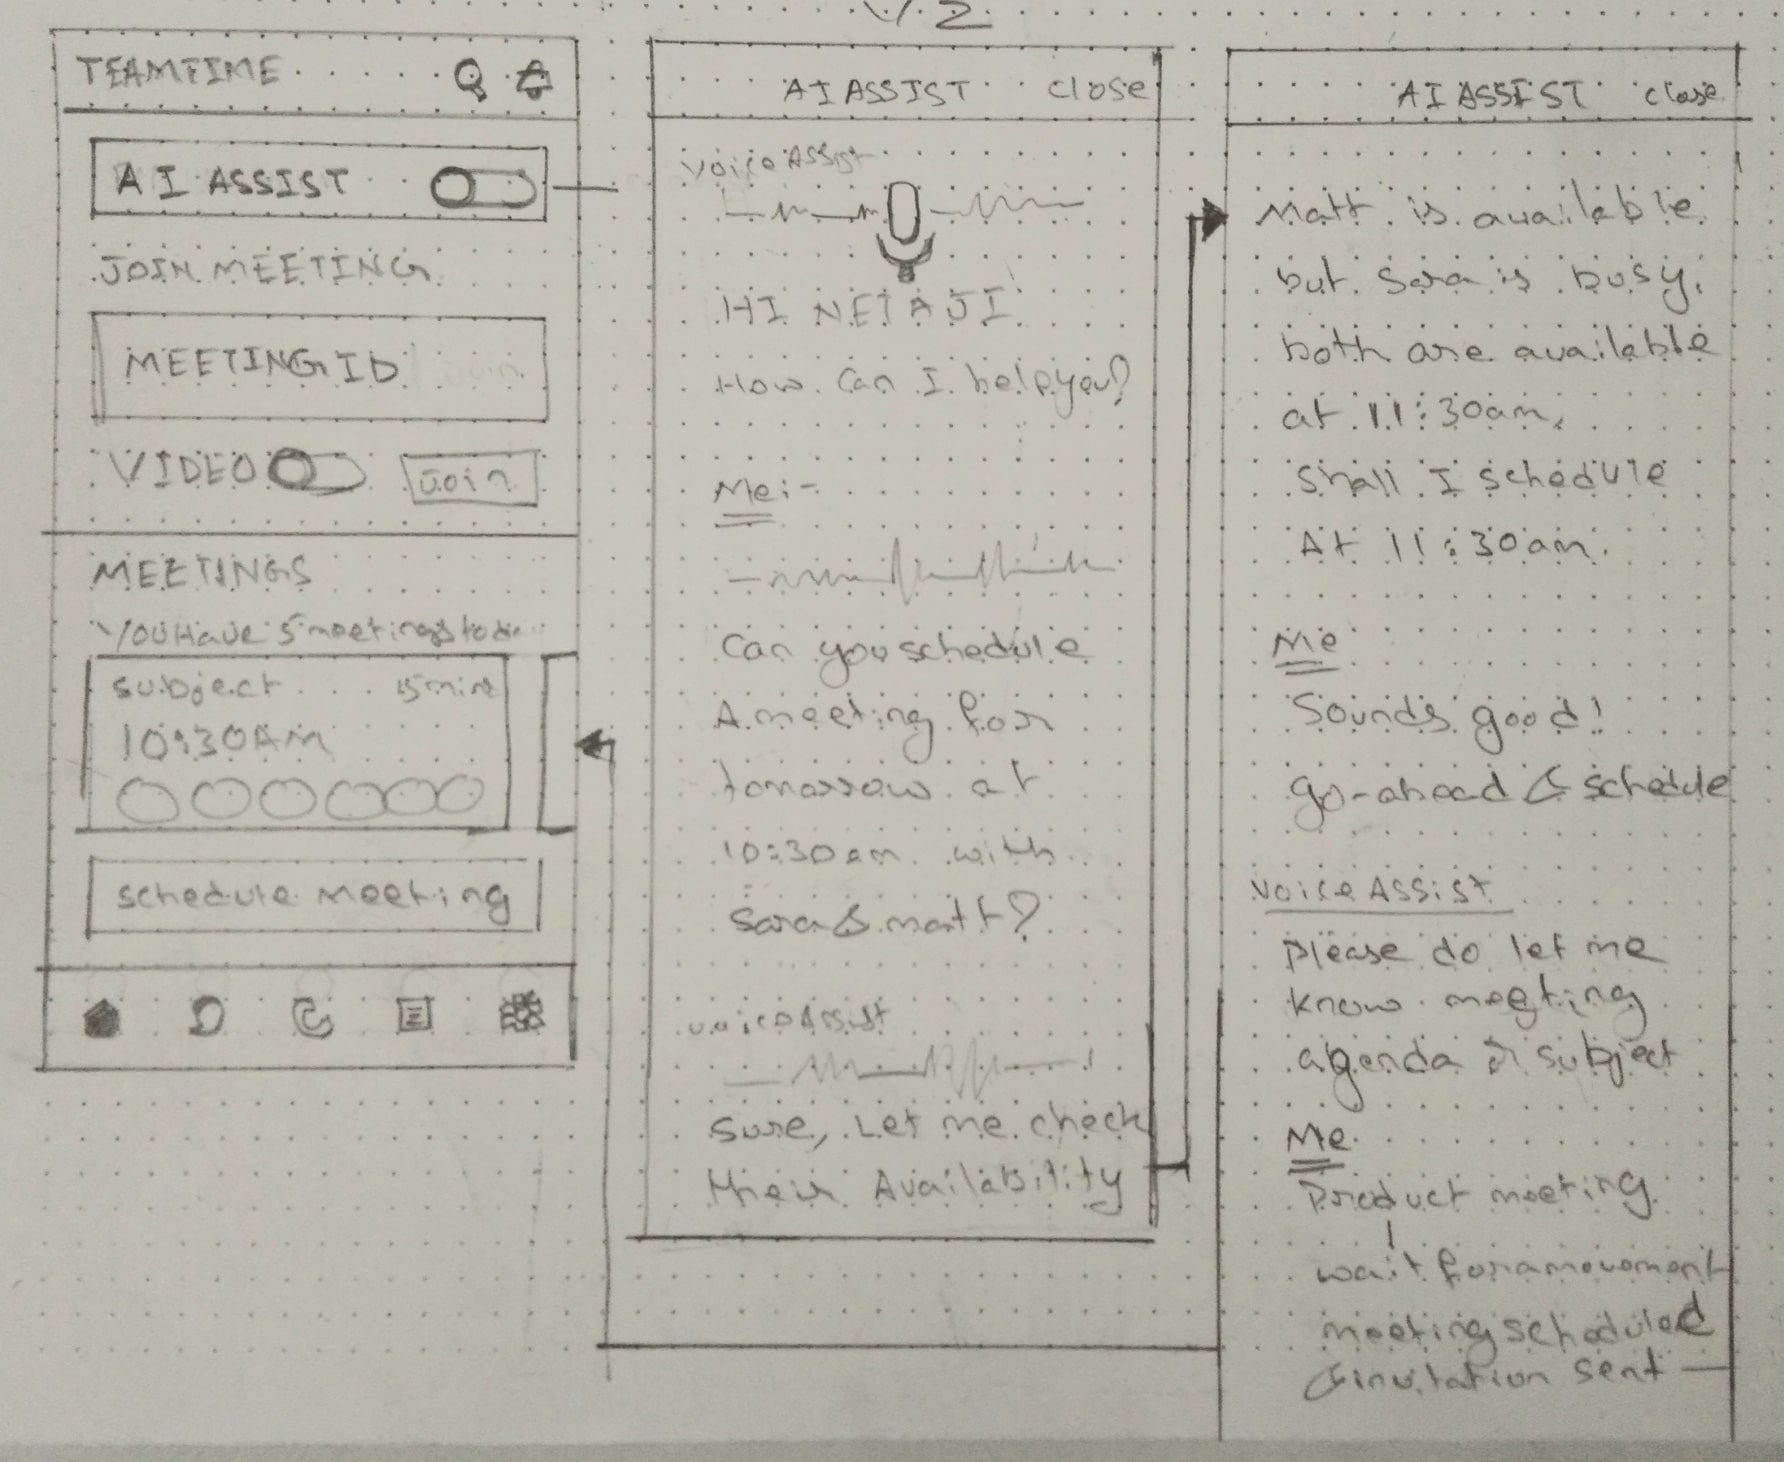 V.2
TEAMTIME
AI ASSIST
JOIN MEETING
MEETING ID
VIDEO
Join
MEETINGS
YOU Have 5 meetings
subject 15 min
10:30AM
schedule meeting
AI ASSIST close
Voice Assist
HI NETAJI
How Can I help you?
Me:-
Can you schedule
A meeting for
tomorrow at
10:30am with
Sara & matt?
voice Assist
Sure, Let me check
their Availability
AI ASSIST close
Matt is available
but Sara is busy,
both are available
at 11:30am,
Shall I schedule
At 11:30am.
Me
Sounds good!
go-ahead & schedule
Voice Assist
please do let me
know meeting
agenda or subject
Me
Product meeting
wait for a movement
meeting scheduled
& invitation sent